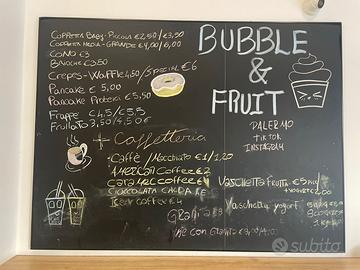 Coppetta Baby-Piccola €2,50/€3,50
Coppetta Media-Grande €4,00/6,00
Cono €3
Brioche €3,50
Crepes-Waffle 4,50/Special €6
Pancake €5,00
Pancake Protein €5,50
Frappé €4,5/€5,5
Frullato 3,50/4,50€
+ Caffetteria
Caffè/Macchiato €1/1,20
American Coffee €2
Caramel coffee €
Cioccolata Calda €
Iced Coffee €4
Granita €3
BUBBLE
&
FRUIT
PALERMO
TIKTOK
INSTAGRAM
Vaschetta Frutta €5
Vaschetta yogurt
subito